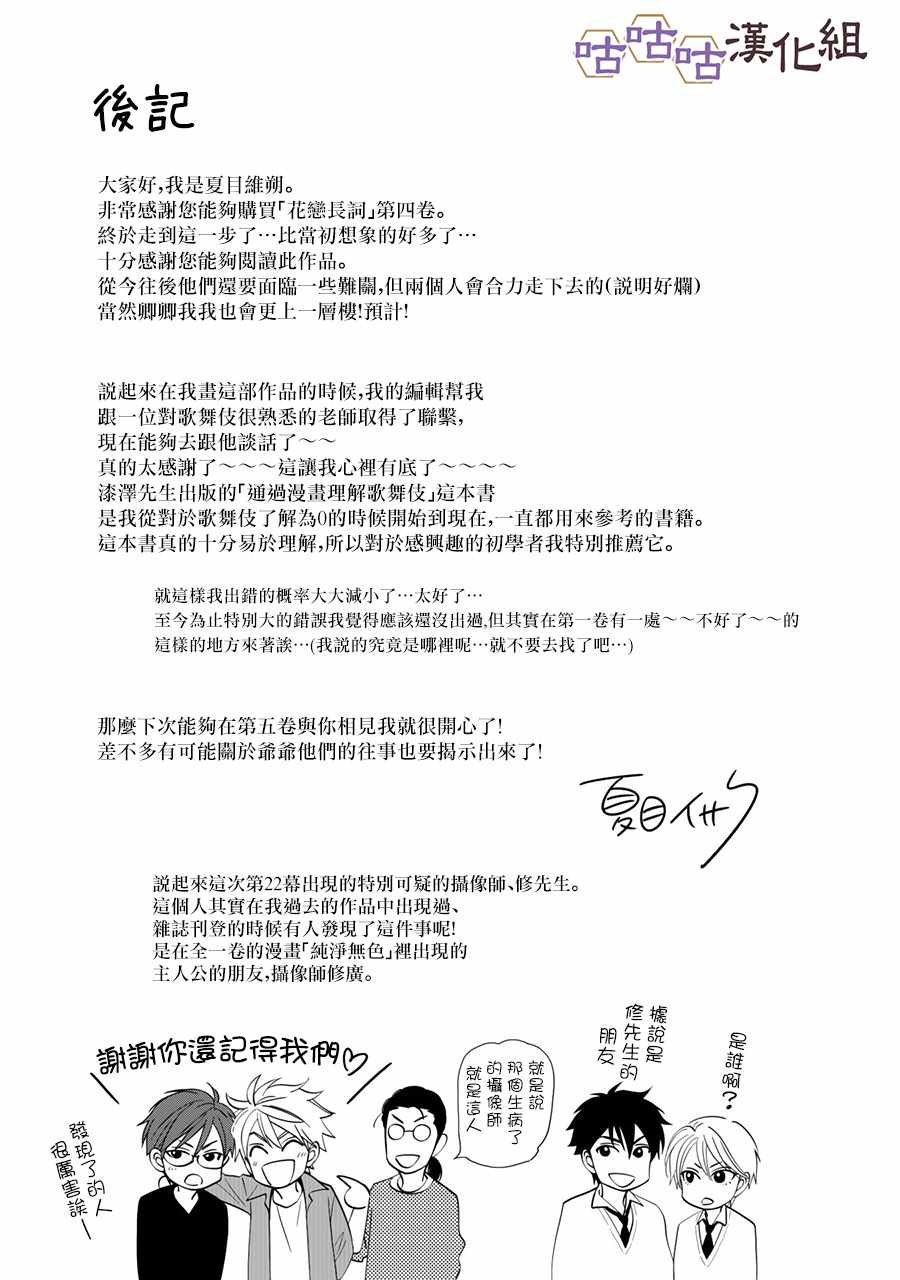 咕咕咕漢化組
後記
大家好,我是夏目維朔。
非常感謝您能夠購買「花戀長詞」第四卷。
終於走到這一步了…比當初想象的好多了…
十分感謝您能夠閱讀此作品。
從今往後他們還要面臨一些難關,但兩個人會合力走下去的(説明好爛)
當然卿卿我我也會更上一層樓!預計!
説起來在我畫這部作品的時候,我的編輯幫我
跟一位對歌舞伎很熟悉的老師取得了聯繫,
現在能夠去跟他談話了～～
真的太感謝了～～～這讓我心裡有底了～～～～
漆澤先生出版的「通過漫畫理解歌舞伎」這本書
是我從對於歌舞伎了解為0的時候開始到現在,一直都用來參考的書籍。
這本書真的十分易於理解,所以對於感興趣的初學者我特別推薦它。
就這樣我出錯的概率大大減小了…太好了…
至今為止特別大的錯誤我覺得應該還沒出過,但其實在第一卷有一處～～不好了～～的
這樣的地方來著誒…(我説的究竟是哪裡呢…就不要去找了吧…)
那麼下次能夠在第五卷與你相見我就很開心了!
差不多有可能關於爺爺他們的往事也要揭示出來了!
夏目イサク
説起來這次第22幕出現的特別可疑的攝像師、修先生。
這個人其實在我過去的作品中出現過、
雜誌刊登的時候有人發現了這件事呢!
是在全一卷的漫畫「純淨無色」裡出現的
主人公的朋友,攝像師修廣。
謝謝你還記得我們♡
發現了的人
很厲害誒—
就是說
那個生病了
的攝像師
就是這人
據說是
修先生的
朋友
是誰啊?